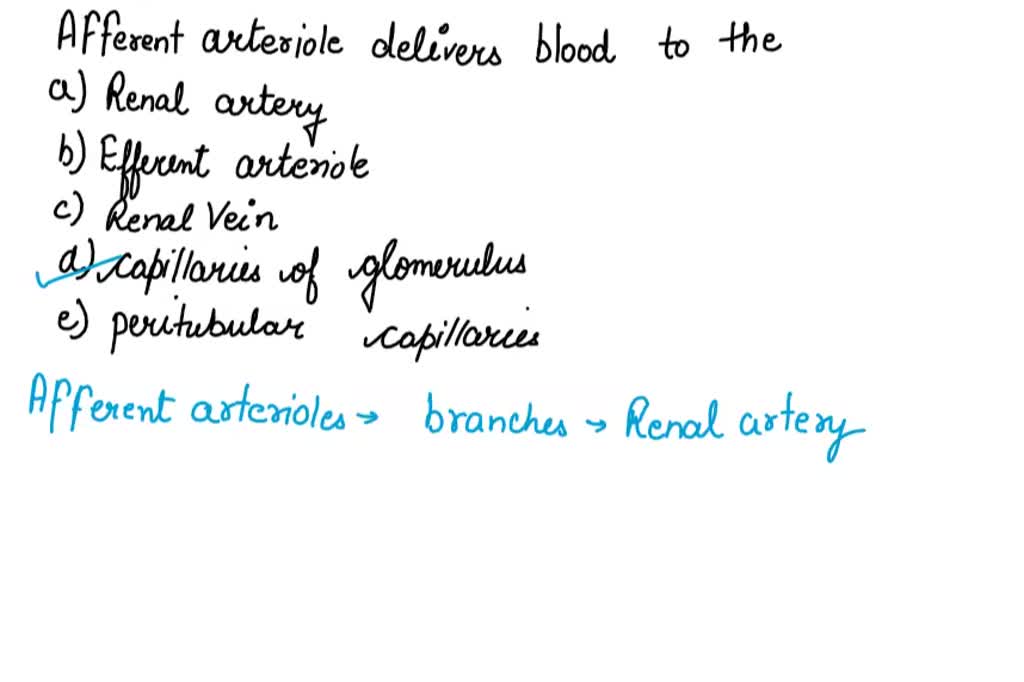 Afferent arteriole delivers blood to the
a) Renal artery
b) Efferent arteriole
c) Renal Vein
d) capillaries of glomerulus
e) peritubular capillaries
Afferent arterioles → branches → Renal artery